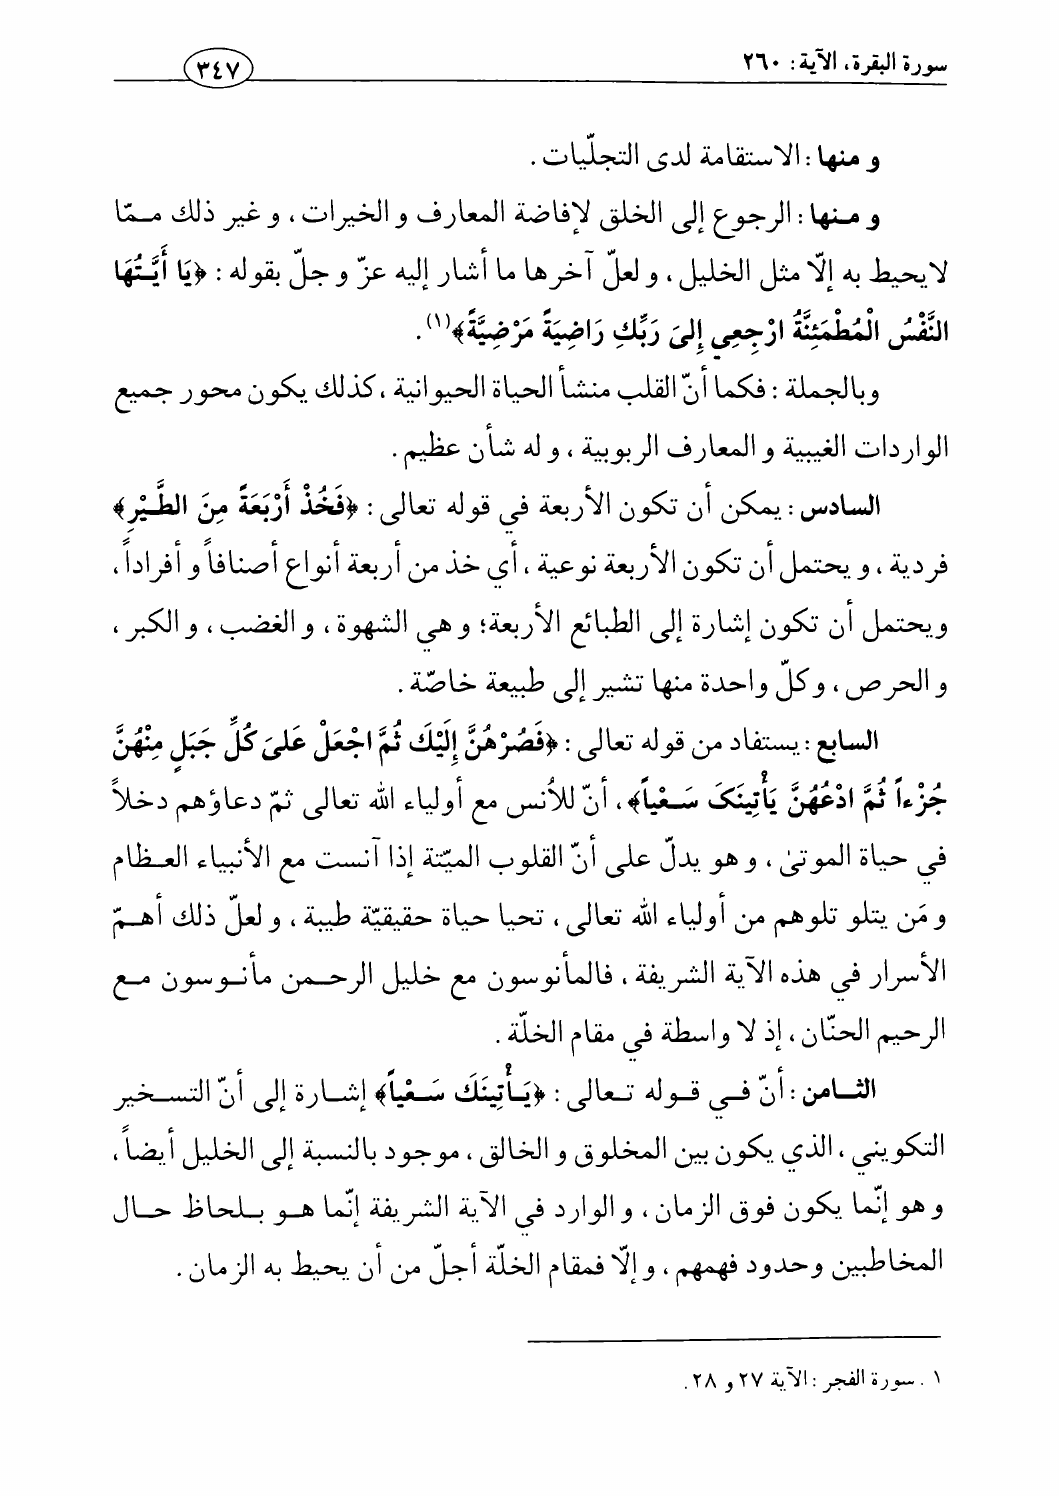 سورة البقرة، الآية: ٢٦٠
٣٤٧
و منها: الاستقامة لدى التجلّيات.
و منها: الرجوع إلى الخلق لإفاضة المعارف و الخيرات، و غير ذلك ممّا
لا يحيط به إلّا مثل الخليل، و لعلّ آخرها ما أشار إليه عزّ و جلّ بقوله: ﴿يَا أَيَّتُهَا
النَّفْسُ الْمُطْمَئِنَّةُ ارْجِعِي إِلىَ رَبِّكِ رَاضِيَةً مَرْضِيَّةً﴾(١).
وبالجملة: فكما أنّ القلب منشأ الحياة الحيوانية، كذلك يكون محور جميع
الواردات الغيبية و المعارف الربوبية، و له شأن عظيم.
السادس: يمكن أن تكون الأربعة في قوله تعالى: ﴿فَخُذْ أَرْبَعَةً مِنَ الطَّيْرِ﴾
فردية، و يحتمل أن تكون الأربعة نوعية، أي خذ من أربعة أنواع أصنافاً و أفراداً،
ويحتمل أن تكون إشارة إلى الطبائع الأربعة؛ و هي الشهوة، و الغضب، و الكبر،
و الحرص، و كلّ واحدة منها تشير إلى طبيعة خاصّة.
السابع: يستفاد من قوله تعالى: ﴿فَصُرْهُنَّ إِلَيْكَ ثُمَّ اجْعَلْ عَلىَ كُلِّ جَبَلٍ مِنْهُنَّ
جُزْءاً ثُمَّ ادْعُهُنَّ يَأْتِينَكَ سَعْياً﴾، أنّ للاُنس مع أولياء الله تعالى ثمّ دعاؤهم دخلاً
في حياة الموتىٰ، و هو يدلّ على أنّ القلوب الميّتة إذا آنست مع الأنبياء العظام
و مَن يتلو تلوهم من أولياء الله تعالى، تحيا حياة حقيقيّة طيبة، و لعلّ ذلك أهمّ
الأسرار في هذه الآية الشريفة، فالمأنوسون مع خليل الرحمن مأنوسون مع
الرحيم الحنّان، إذ لا واسطة في مقام الخلّة.
الثامن: أنّ في قوله تعالى: ﴿يَأْتِينَكَ سَعْياً﴾ إشارة إلى أنّ التسخير
التكويني، الذي يكون بين المخلوق و الخالق، موجود بالنسبة إلى الخليل أيضاً،
و هو إنّما يكون فوق الزمان، و الوارد في الآية الشريفة إنّما هو بلحاظ حال
المخاطبين وحدود فهمهم، و إلّا فمقام الخلّة أجلّ من أن يحيط به الزمان.
١. سورة الفجر: الآية ٢٧ و ٢٨.